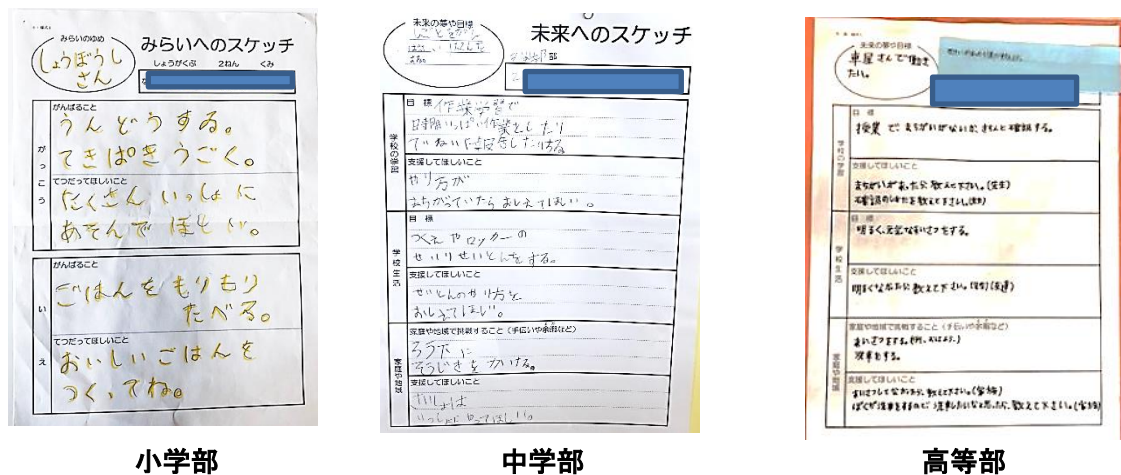 みらいのゆめ
しょうぼうし
さん
みらいへのスケッチ
しょうがくぶ 2ねん くみ
がっこう
がんばること
うんどうする。
てきぱきうごく。
てつだってほしいこと
たくさん いっしょに
あそんでほしい。
いえ
がんばること
ごはんをもりもり
たべる。
てつだってほしいこと
おいしいごはんを
つくってね。
小学部
未来の夢や目標
未来へのスケッチ
学校の学習
目標
作業学習で
時間いっぱい作業をしたり
ていねいに
支援してほしいこと
やり方が
まちがっていたらおしえてほしい。
学校生活
目標
つくえやロッカーの
せいりせいとんをする。
支援してほしいこと
せいとんのやり方を
おしえてほしい。
家庭や地域
家庭や地域で挑戦すること(手伝いや余暇など)
ろうかに
そうじきをかける。
支援してほしいこと
いっしょにやってほしい。
中学部
未来の夢や目標
車屋さんで働き
たい。
学校の学習
目標
授業で、まちがいがないか、きちんと確認する。
支援してほしいこと
まちがいがあったら教えて下さい。(先生)
確認のしかたを教えて下さい。
学校生活
目標
明るく、元気なあいさつをする。
支援してほしいこと
明るくなかったら教えて下さい。(先生)(友達)
家庭や地域
家庭や地域で挑戦すること(手伝いや余暇など)
あいさつをする。
洗車をする。
支援してほしいこと
あいさつしてなかったら、教えて下さい。(家族)
高等部